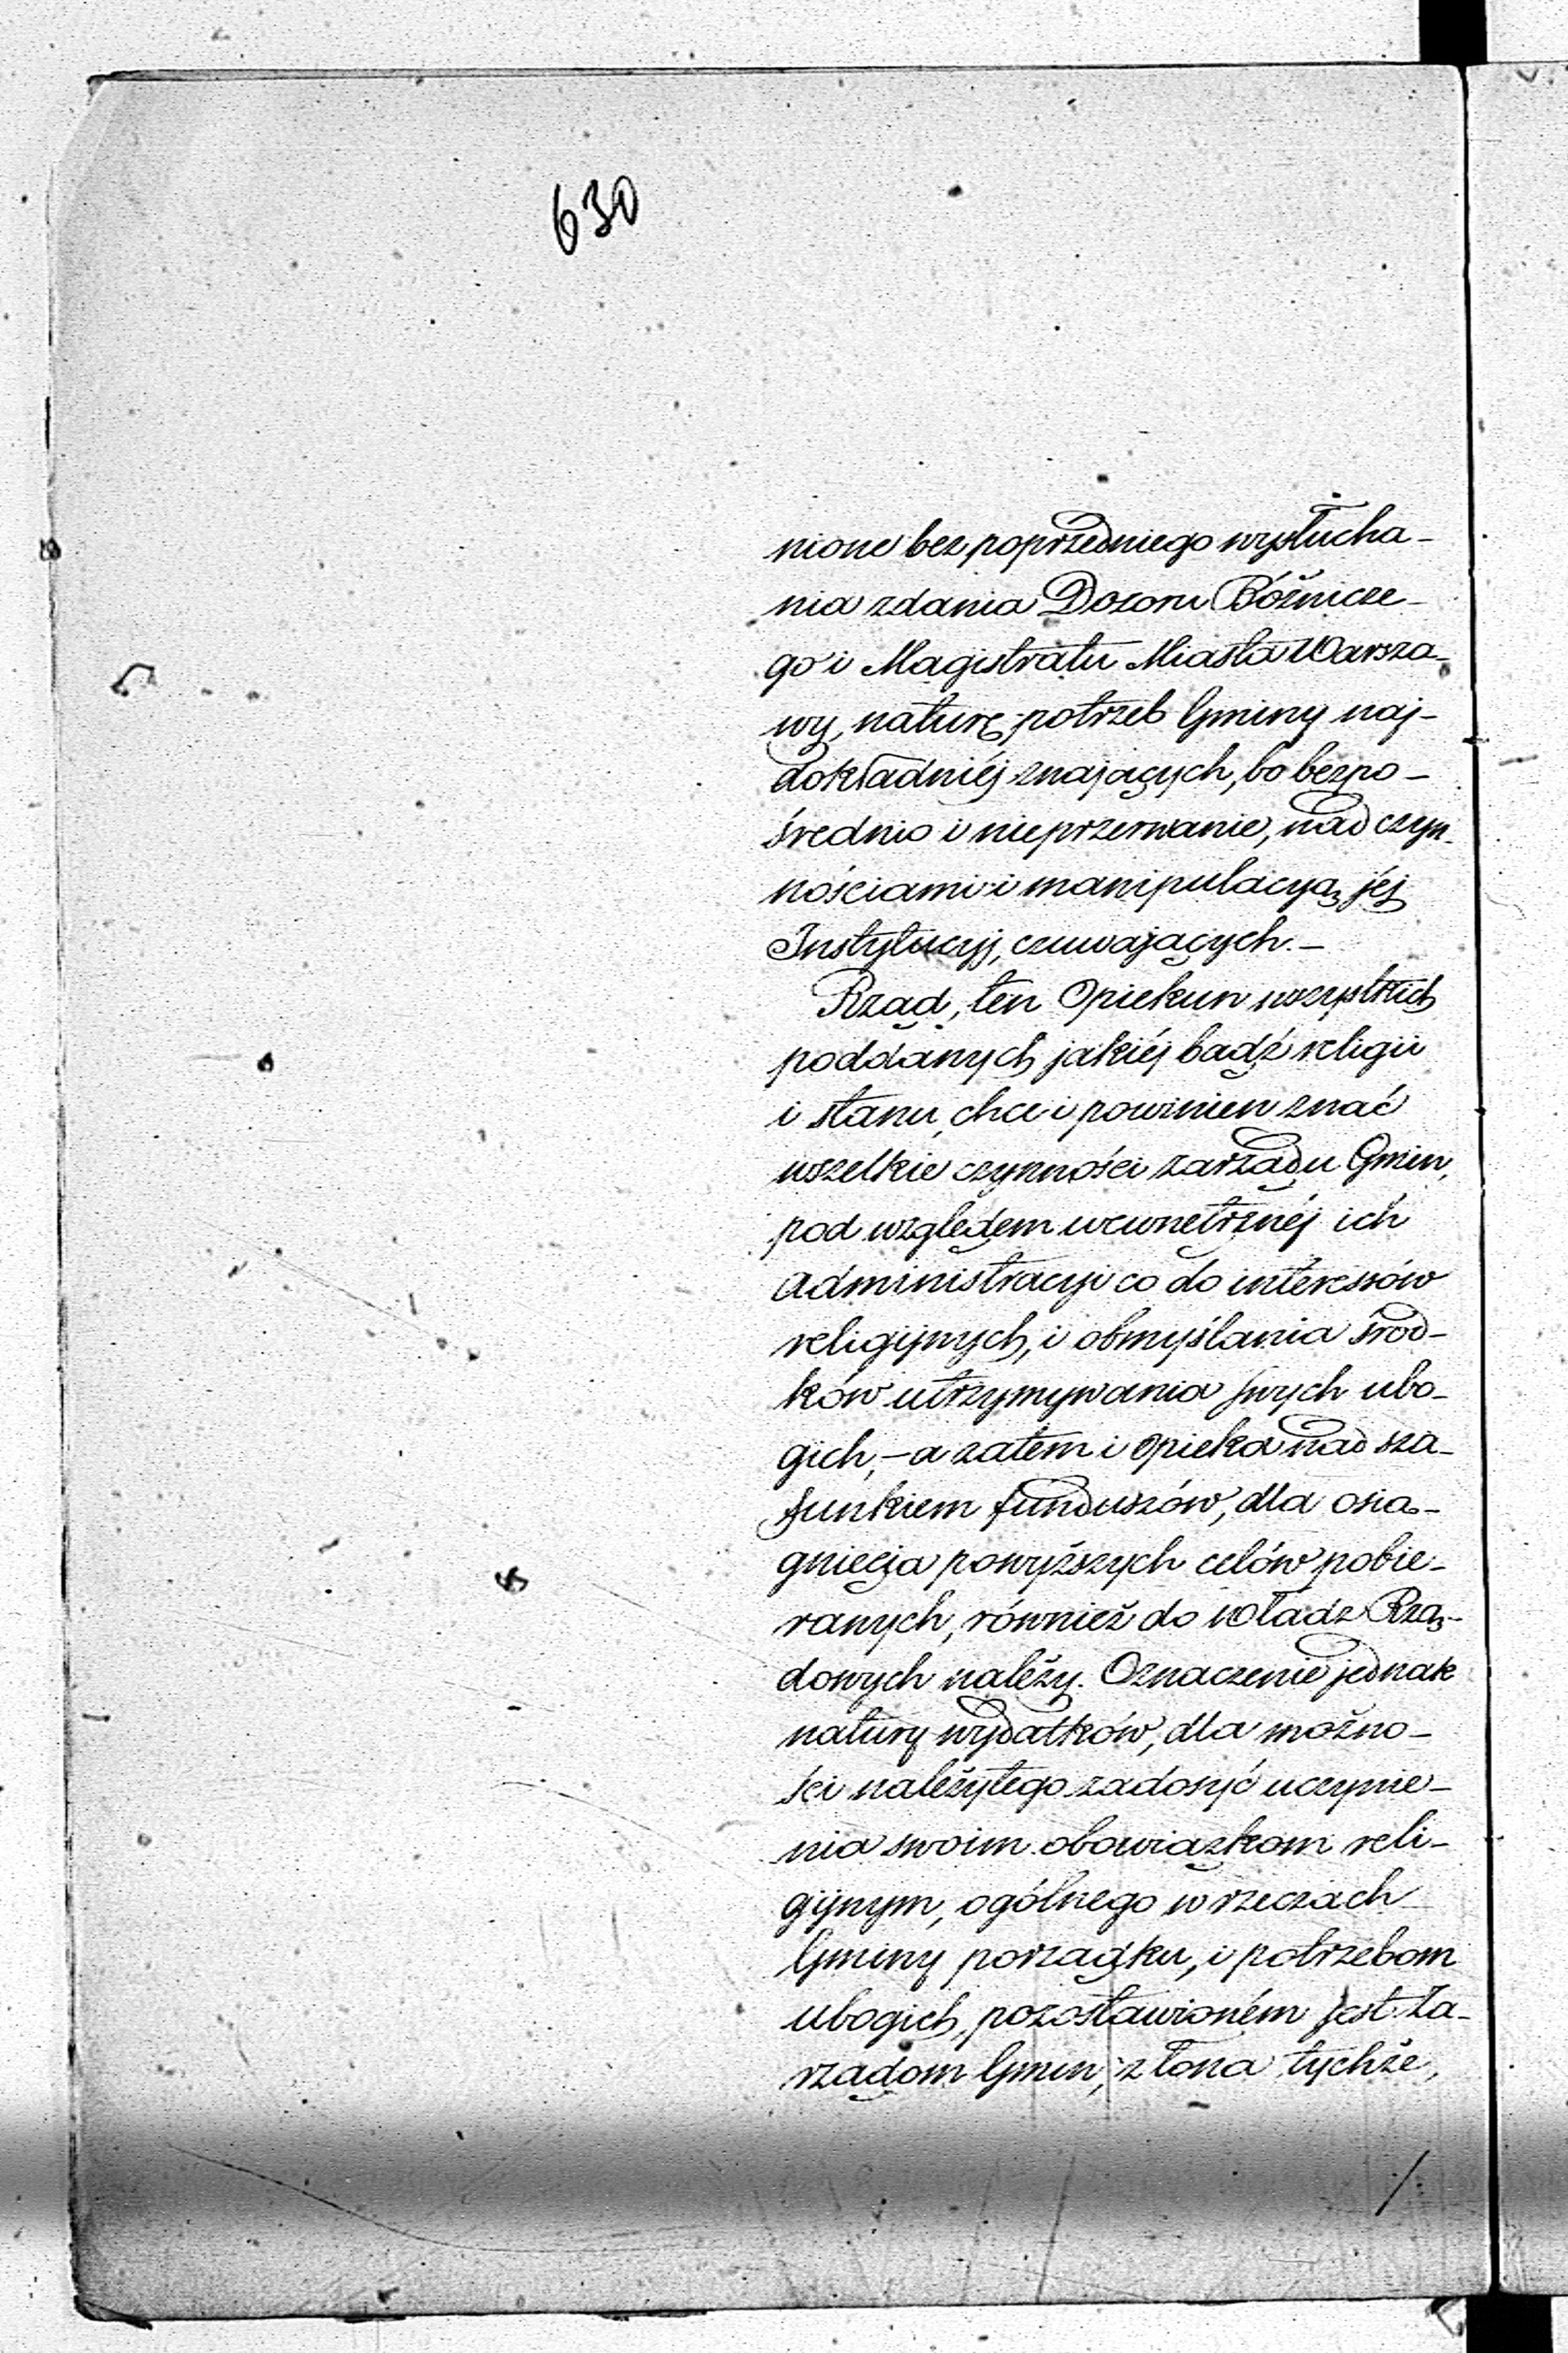 630
nione bez poprzedniego wysłucha-
nia zdania Dozoru Bóżnicze-
go i Magistratu Miasta Warsza-
wy, naturę potrzeb Gminy naj-
dokładniéj znających, bo bezpo-
średnio i nieprzerwanie, nad czyn-
nościami i manipulacyą jéj
Instytucyj, czuwających.-
Rząd, ten Opiekun wszystkich
poddanych jakiéj bądź religii
i stanu, chce i powinien znać
wszelkie czynności zarządu Gmin,
pod względem wewnętrznéj ich
administracyi co do interessów
religijnych, i obmyślania środ-
ków utrzymywania swych ubo-
gich,- a zatem i opieka nad sza-
funkiem funduszów, dla osią-
gnięcia powyższych celów pobie-
ranych, również do władz Rzą-
dowych należy. Oznaczenie jednak
natury wydatków, dla możno-
ści należytego zadosyć uczynie-
nia swoim obowiązkom reli-
gijnym, ogólnego w rzeczach
Gminy porządku, i potrzebom
ubogich, pozostawioném jest Za-
rządom Gmin, z łona tychże,